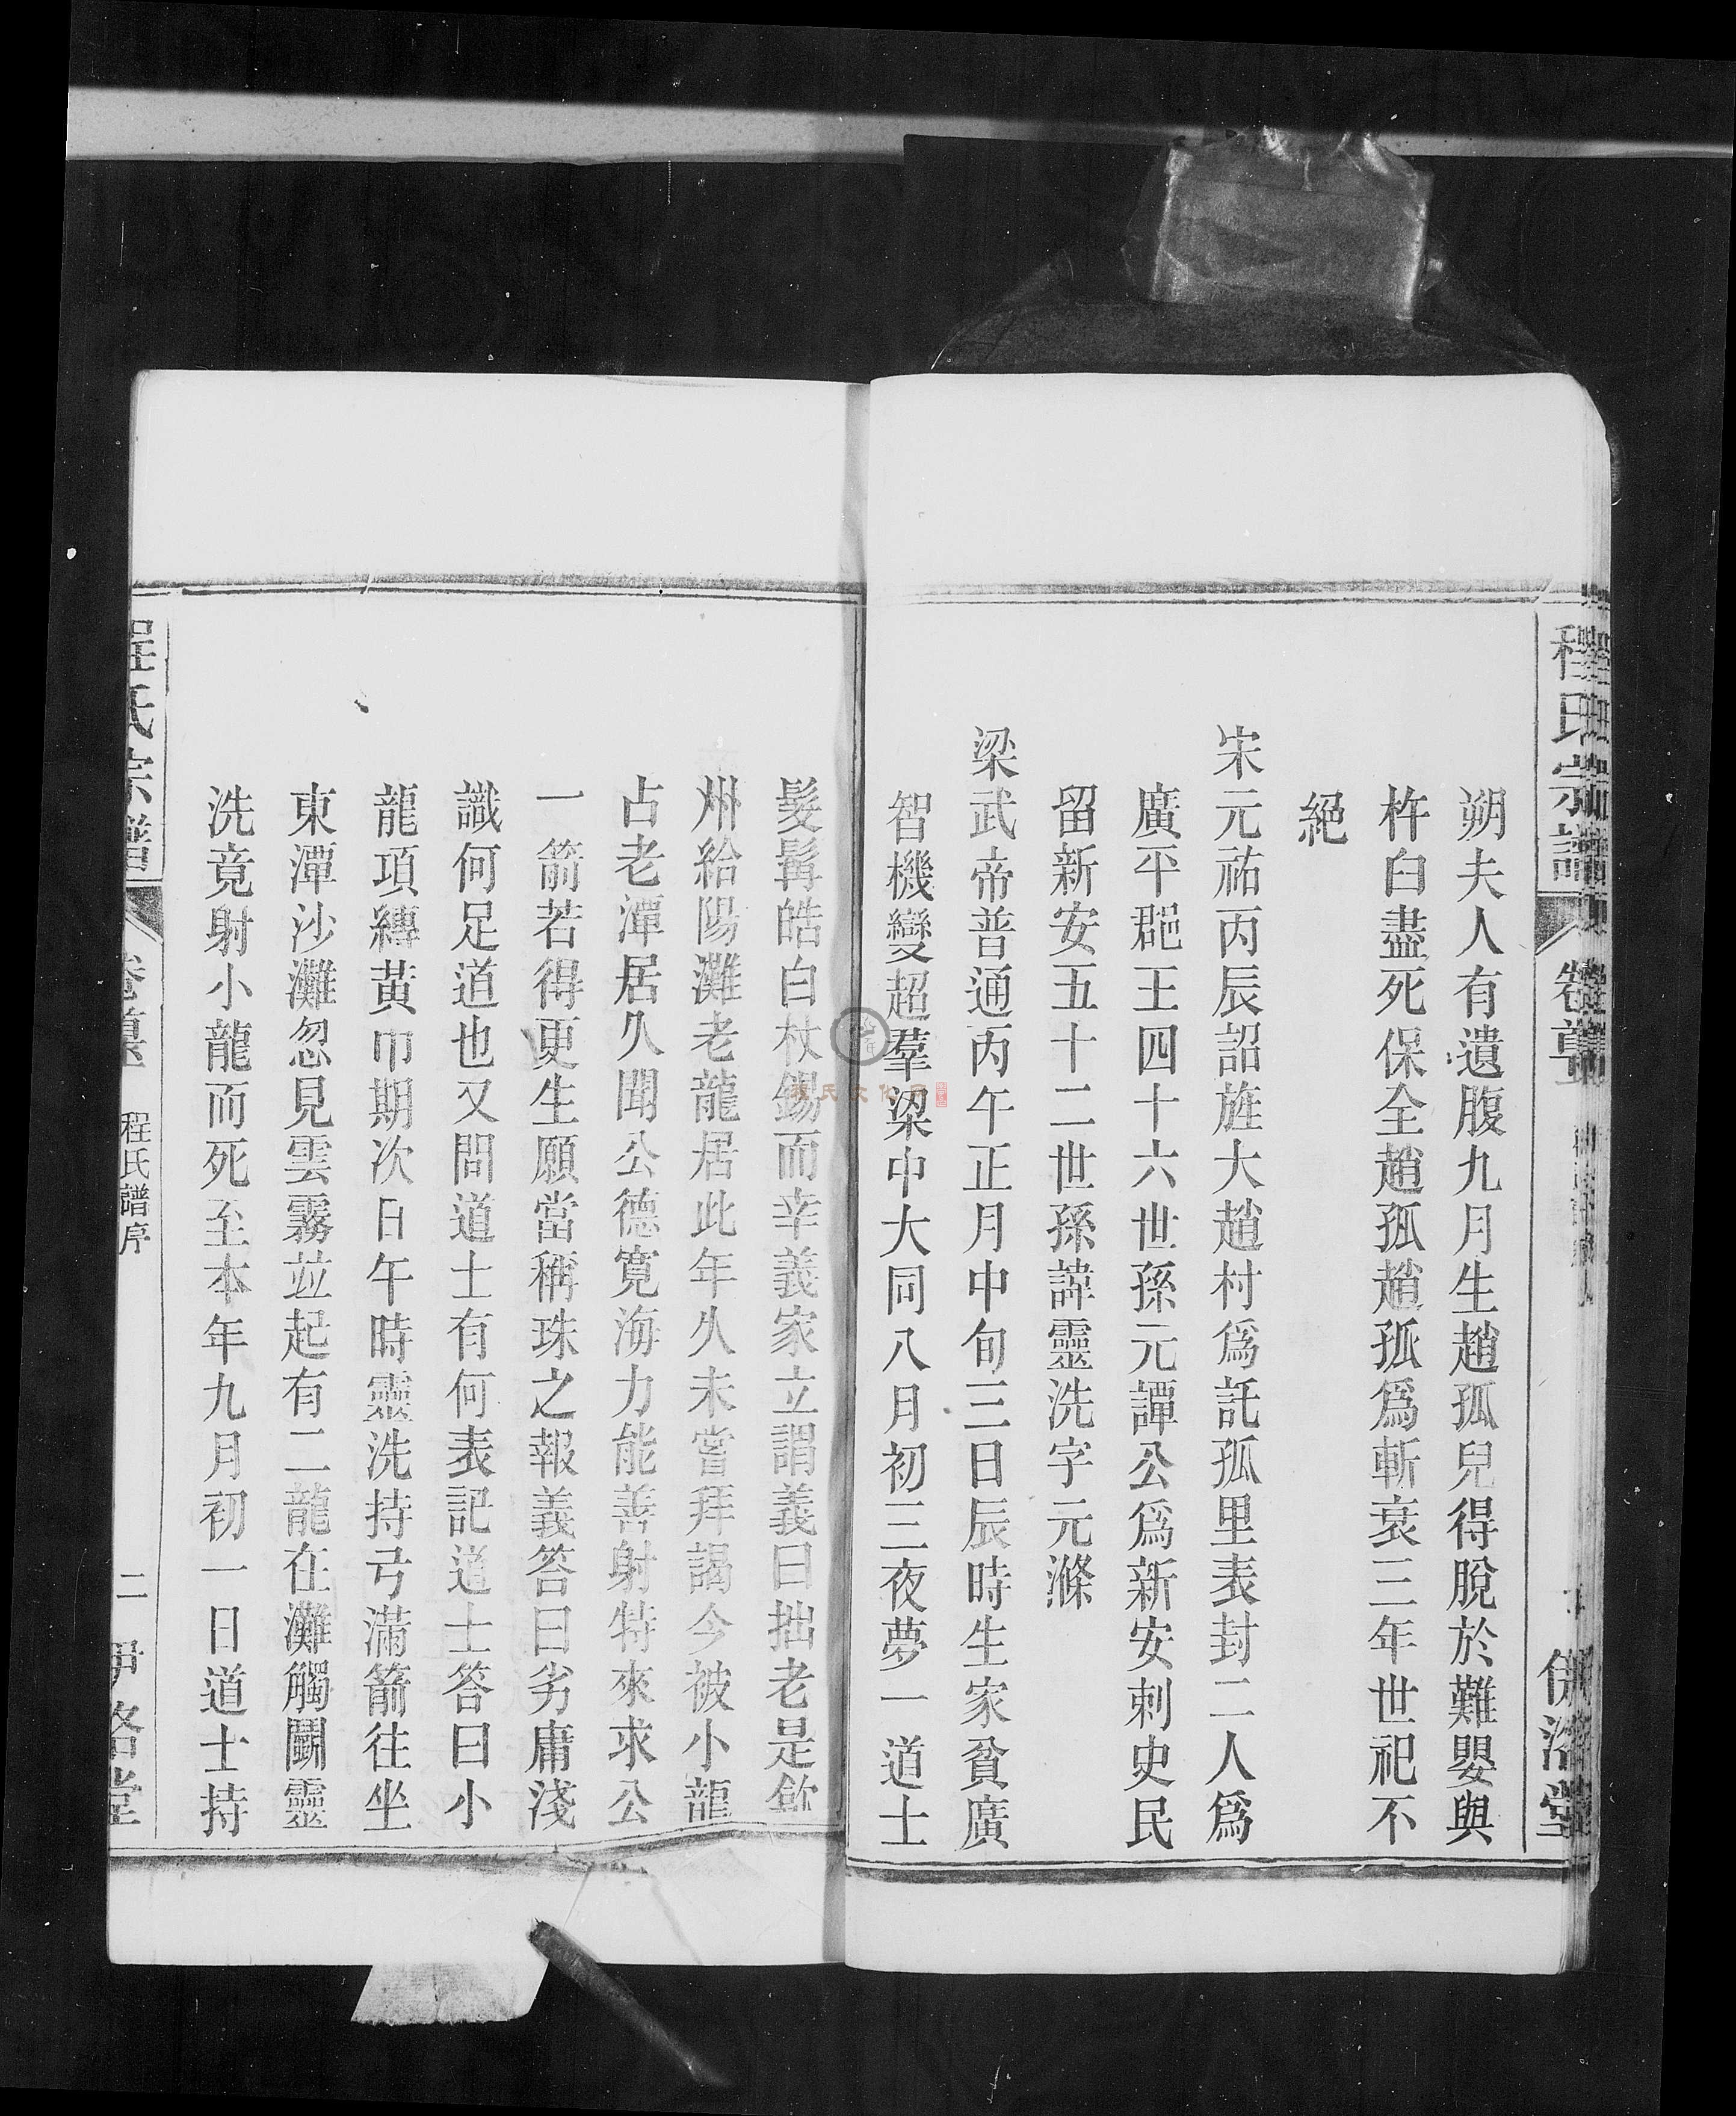 程氏宗譜
朔夫人有遺腹九月生趙孤兒得脫於難嬰與
杵臼盡死保全趙孤趙孤爲斬衰三年世祀不
絕
宋元祐丙辰詔旌大趙村爲託孤里表封二人爲
廣平郡王四十六世孫元譚公爲新安刺史民
留新安五十二世孫諱靈洗字元滌
梁武帝普通丙午正月中旬三日辰時生家貧廣
智機變超羣梁中大同八月初三夜夢一道士
髮髯皓白杖錫而幸義家立謂義曰拙老是歙
州給陽灘老龍居此年久未嘗拜謁今被小龍
占老潭居久聞公德寛海力能善射特來求公
一箭若得更生願當稱珠之報義答曰劣庸淺
識何足道也又問道士有何表記道士答曰小
龍項縛黃巾期次日午時靈洗持弓滿箭往坐
東潭沙灘忽見雲霧並起有二龍在灘觸鬭靈
洗竟射小龍而死至本年九月初一日道士持
程氏宗譜
卷首
程氏譜序
二
伊洛堂